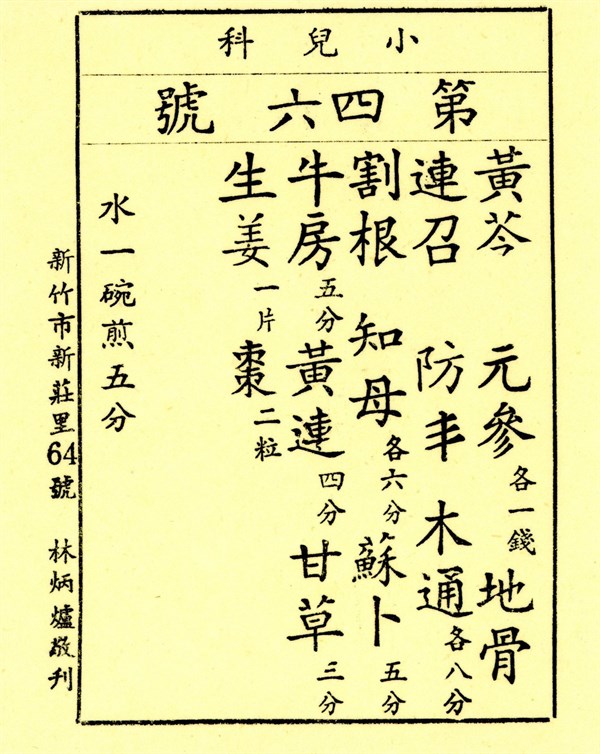 小兒科
第四六號
黃芩 元參各一錢 地骨
連召 防丰 木通各八分
割根 知母各六分 蘇卜五分
牛房五分 黃連四分 甘草三分
生姜一片 棗二粒
水一碗煎五分
新竹市新莊里64號 林炳爐敬刊